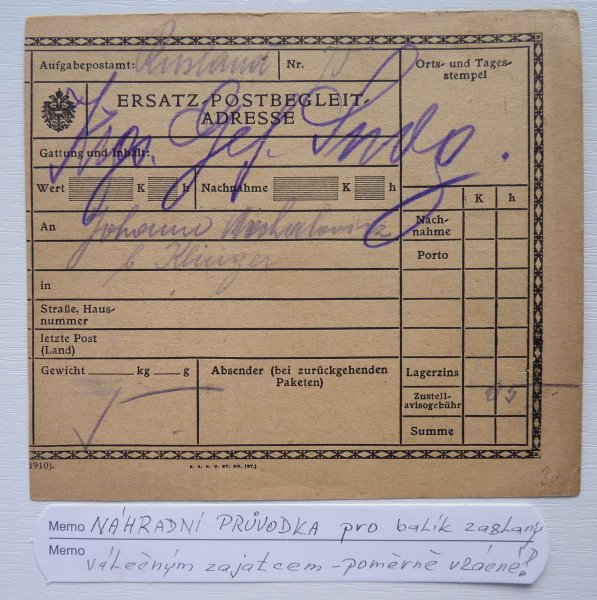 Aufgabepostamt: Russland Nr.
Orts- und Tages-
stempel
ERSATZ-POSTBEGLEIT-
ADRESSE
Kgs. Gef. Sndg.
Gattung und Inhalt:
Wert K h Nachnahme K h
K h
An Johann
b Klinger
Nach-
nahme
Porto
in
Straße, Haus-
nummer
letzte Post
(Land)
Gewicht kg g
Absender (bei zurückgehenden
Paketen)
Lagerzins
Zustell-
avisogebühr
Summe
1910).
K. K. H. U. ST. DR. (ST.)
Memo NÁHRADNÍ PRŮVODKA pro balík zaslaný
Memo válečným zajatcem - poměrně vzácné!